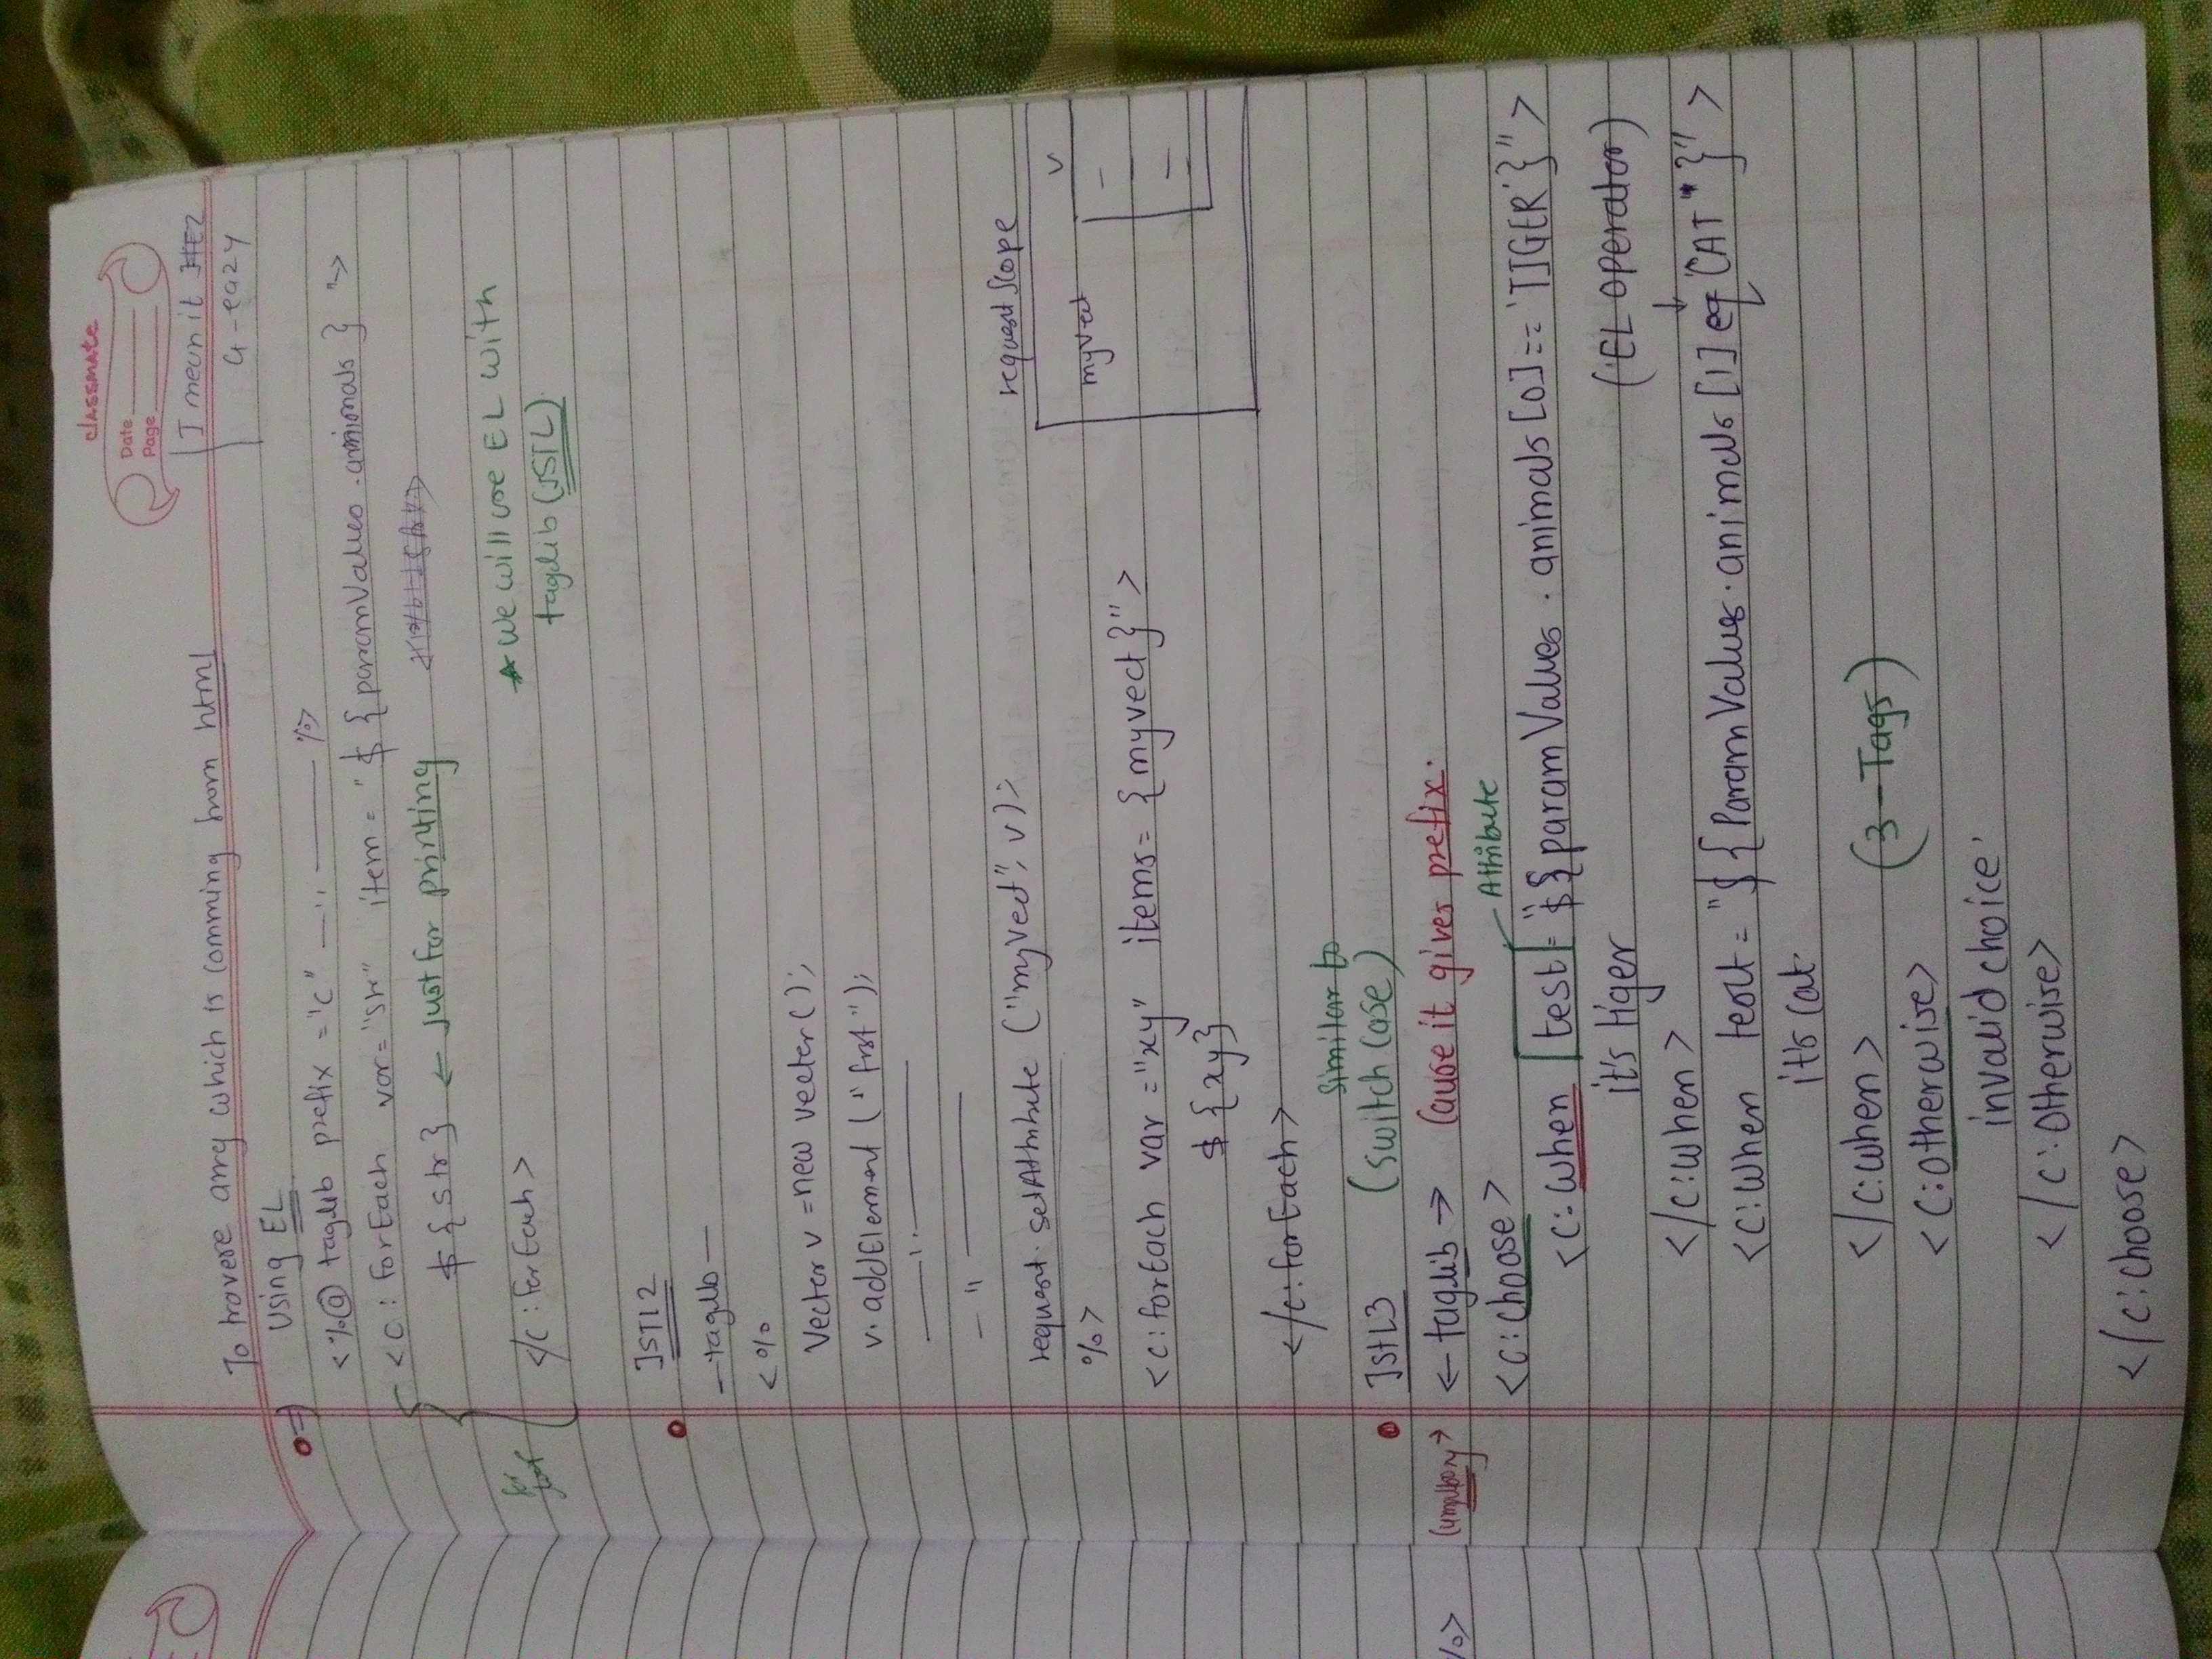 classmate
Date
Page
I mean it
G-eazy
To travere array which is comming from html
using EL
<%@ taglib prefix = "c" — ,, —— %>
<c: forEach var="str" item = "${paramValues.animals}" >
${str} ← Just for printing
for
</c:forEach>
★ We will use EL with
taglib (JSTL)
JSTL2
— taglib —
<%
Vector v = new vector();
v.addElement ("first");
— ,, —
— ,, —
request.setAttribute ("myvect", v);
requestScope
v
myvect
%>
<c:forEach var ="xy" items= {myvect}" >
${xy}
</c:forEach>
JstL3
Similar to
(switch case)
%>
<- taglib -> Cause it gives prefix.
<c:choose>
Attribute
<c:when test = "${paramValues.animals[0]== 'TIGER'}" >
it's tiger
(EL operator)
</c:when>
<c:when test = "${ParamValues.animals[1] eq 'CAT'}" >
it's cat
</c:when>
(3-Tags)
<c:otherwise>
invalid choice
</c:otherwise>
</c:choose>